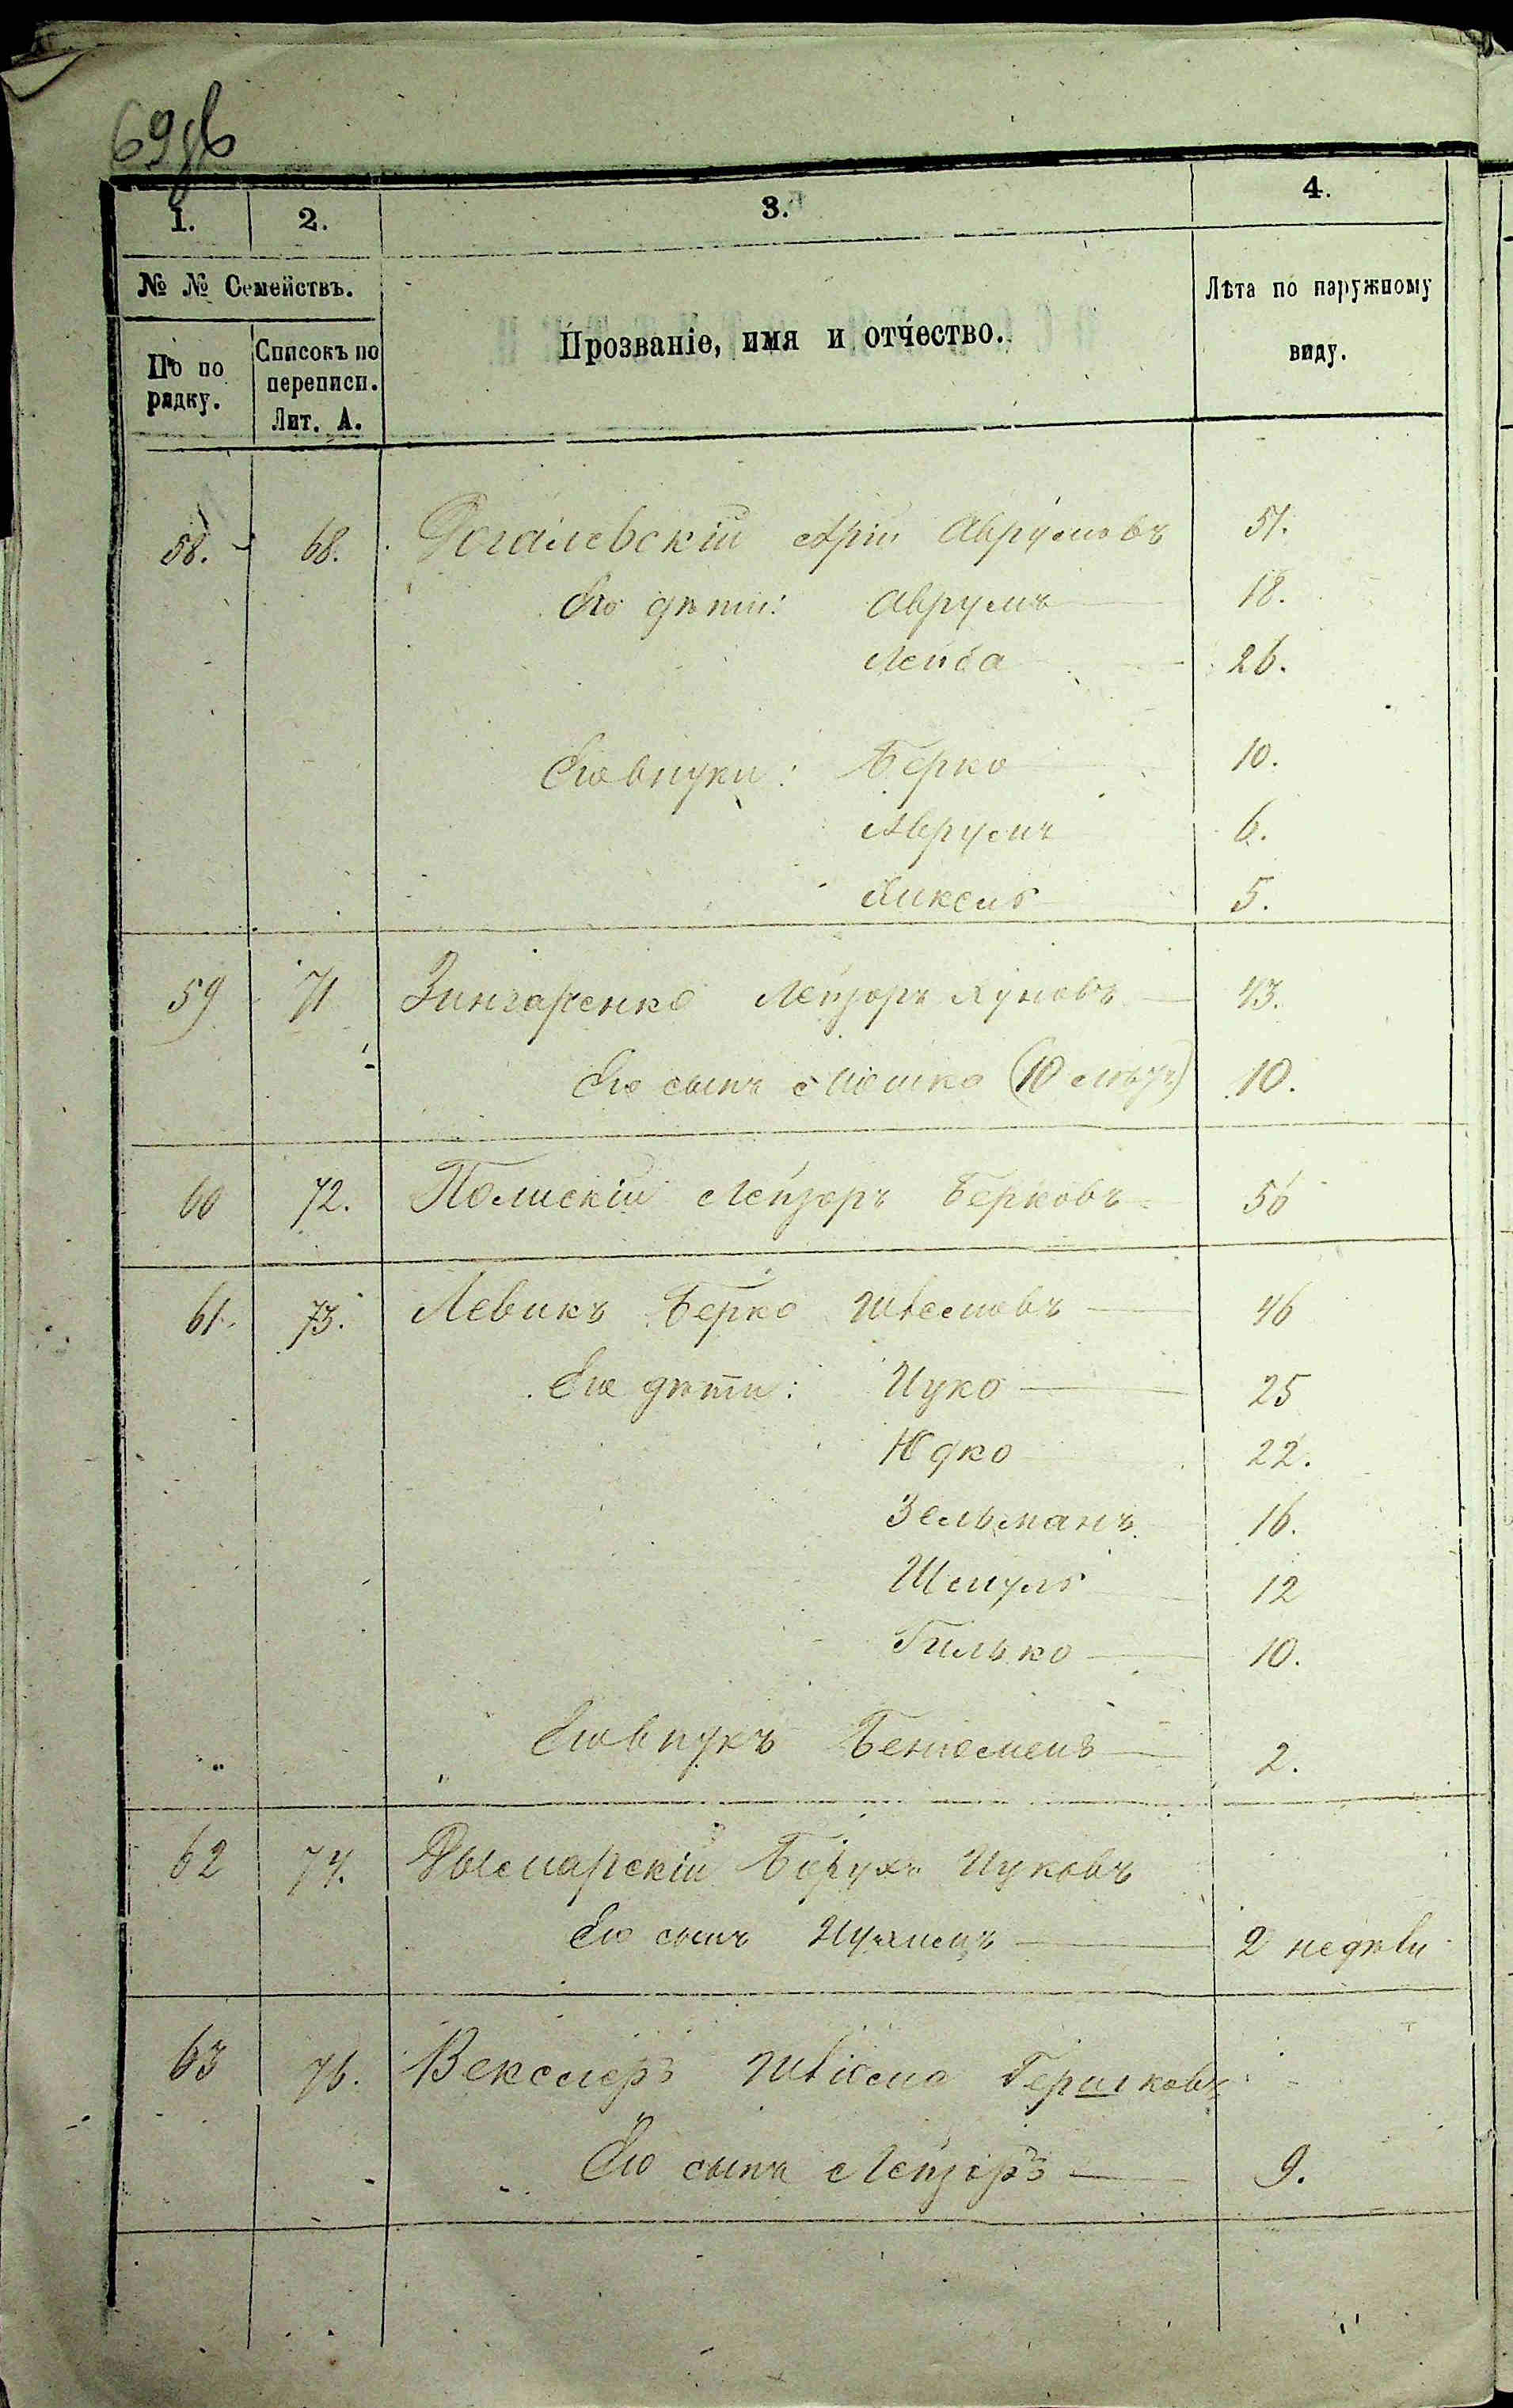 69
1. 2. 3. 4.
№ № Семействъ.
По по рядку.
Списокъ по переписи. Лит. А.
Прозваніе, имя и отчество.
Лѣта по наружному виду.
58. 68. Рогалевскій Арій Аврумовъ 51.
Его дѣти: Аврумъ 18.
Лейба 26.
Его внуки: Берко 10.
Аврумъ 6.
5.
59 71 Зингаренко Лейзоръ Хуновъ 43.
Его сынъ Мошко 10.
60 72. Полискій Лейзоръ Берковъ 50
61. 73. Левикъ Берко 46
Его дѣти: Ицко 25
Юдко 22.
Зельманъ 16.
Шмуль 12
Гилько 10.
Его внукъ Бенюменъ 2.
62 74. Борухъ Ицковъ
Его сынъ 2 недѣли
63 76. Векслеръ Гершковъ
Его сынъ Лейзоръ 9.